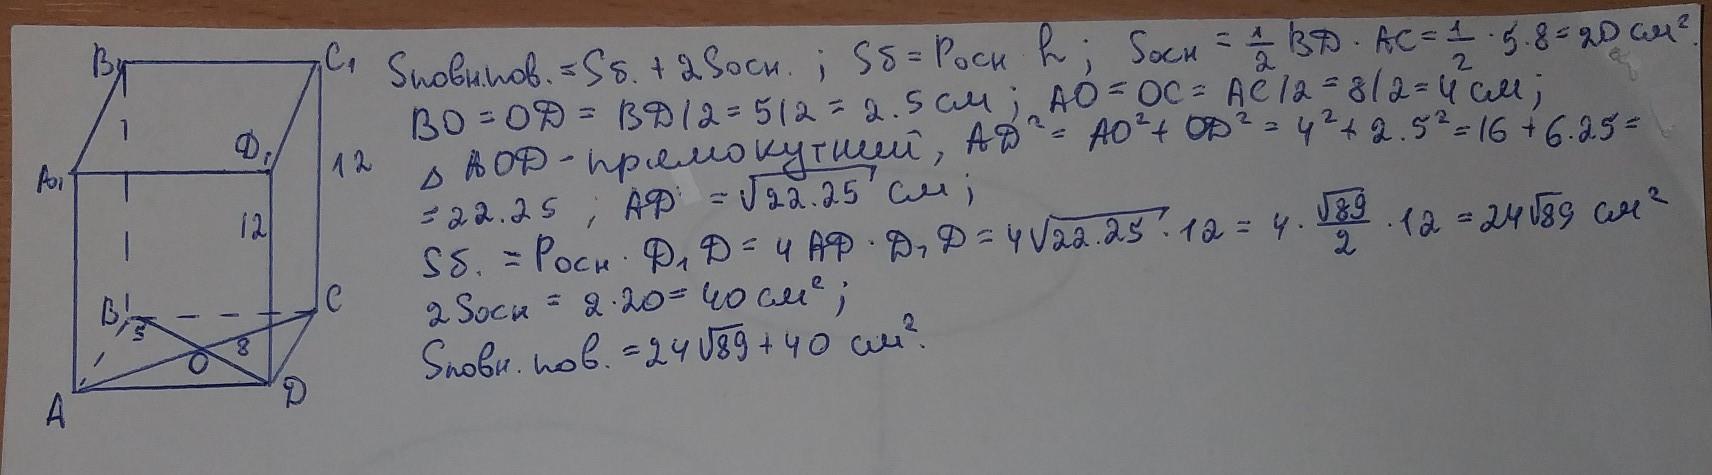 B₁ C₁
A₁ D₁ 12
12
B 5 C
8
O
A D
Sповн.пов. = Sб. + 2Sосн. ; Sб = Pосн h ; Sосн = 1/2 BD · AC = 1/2 · 5 · 8 = 20 см².
BO = OD = BD/2 = 5/2 = 2.5 см ; AO = OC = AC/2 = 8/2 = 4 см ;
Δ AOD - прямокутний, AD² = AO² + OD² = 4² + 2.5² = 16 + 6.25 =
= 22.25 ; AD = √22.25 см ;
Sб. = Pосн · D₁D = 4 AD · D₁D = 4√22.25 · 12 = 4 · √89/2 · 12 = 24√89 см²
2Sосн = 2·20 = 40 см² ;
Sповн. пов. = 24√89 + 40 см².